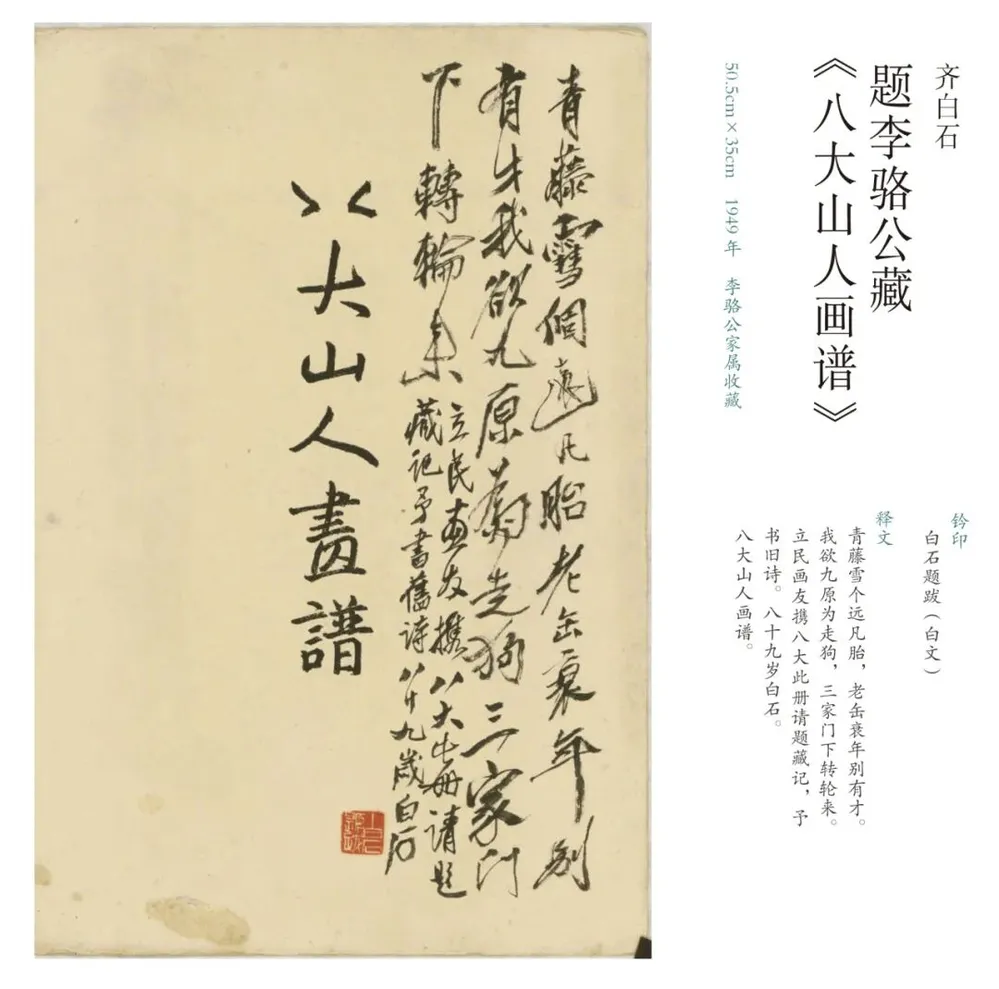 齐白石
题李骆公藏
《八大山人画谱》
50.5cm×35cm 1949年 李骆公家属收藏
钤印
白石题跋（白文）
释文
青藤雪个远凡胎，老缶衰年别有才。
我欲九原为走狗，三家门下转轮来。
立民画友携八大此册请题藏记，予
书旧诗。八十九岁白石。
八大山人画谱。
青藤雪個遠凡胎老缶衰年别
有才我欲九原為走狗三家門
下轉輪来
立民画友攜八大此册请題
藏記予書舊诗八十九歲白石
八大山人畫譜